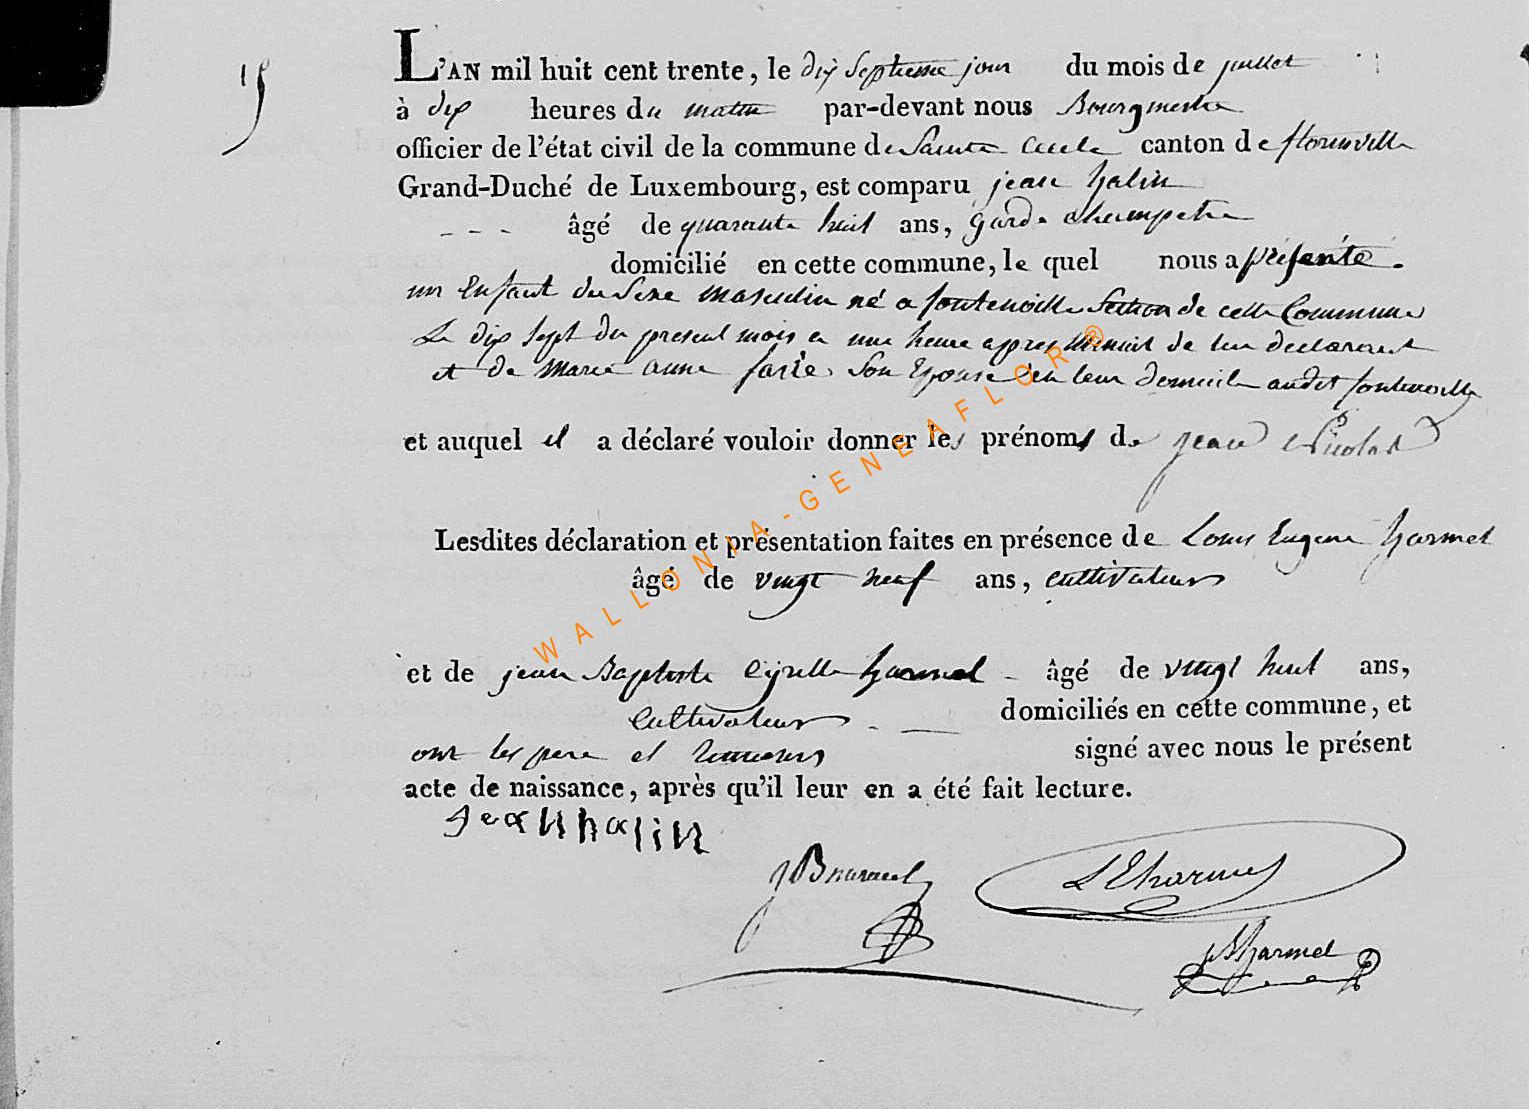 15
L'AN mil huit cent trente, le dix septieme jour du mois de juillet
à dix heures du matin par-devant nous Bourgmestre
officier de l'état civil de la commune de Sainte Cecile canton de florenville
Grand-Duché de Luxembourg, est comparu jean halin
- - - âgé de quarante huit ans, garde champetre
domicilié en cette commune, le quel nous a présenté.
un Enfant du Sexe masculin né a fontenoille Section de cette Commune
Le dix Sept du present mois a une heure apres Minuit de lui declarant
et de marie anne Son Epouse en leur domicile audit fontenoille
et auquel il a déclaré vouloir donner les prénoms de jean Nicolas
Lesdites déclaration et présentation faites en présence de Louis Eugene harmel
âgé de vingt neuf ans, cultivateur
et de jean Baptiste Cyrille harmel - âgé de vingt huit ans,
Cultivateur - — domiciliés en cette commune, et
ont les pere et temoins signé avec nous le présent
acte de naissance, après qu'il leur en a été fait lecture.
jean halin
LEharmel
JBharmel
WALLONIA-GENEAFLOR®